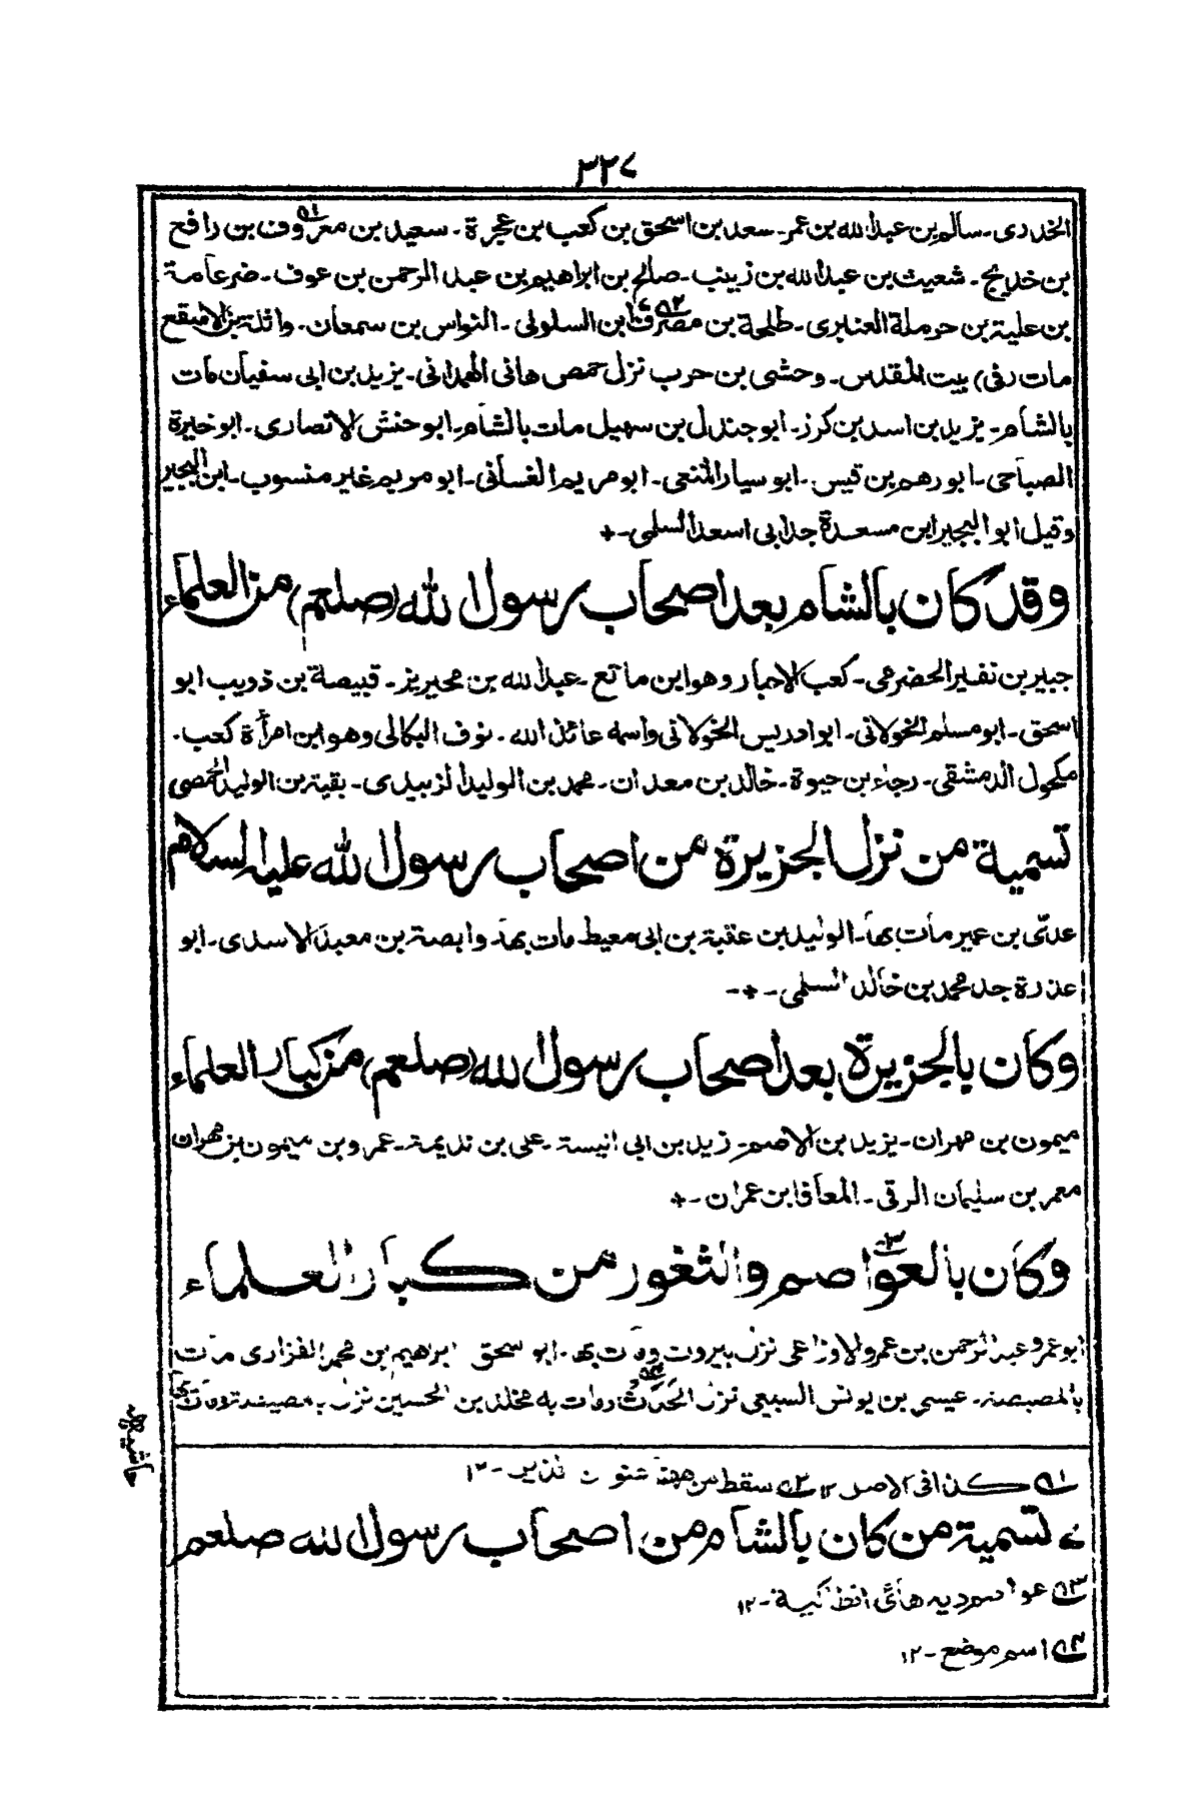 ٣٢٧
الخدري۔ سالم بن عبد الله بن عمر۔ سعد بن اسحق بن كعب بن عجرة۔ سعيد بن معروف بن رافع
بن خديج۔ شعيث بن عبد الله بن زبيب۔ صالح بن ابراهيم بن عبد الرحمن بن عوف۔ ضرعامة
بن علية بن حرملة العنبري۔ طلحة بن مصرف ابن السلولي۔ النواس بن سمعان۔ واثلة بن الاسقع
مات (في) بيت المقدس۔ وحشى بن حرب نزل حمص هانى الهمدانى۔ يزيد بن ابى سفيان مات
بالشام۔ يزيد بن اسد بن كرز۔ ابو جندل بن سهيل مات بالشام۔ ابو حنش الانصارى۔ ابو خيرة
الصباحى۔ ابو رهم بن قيس۔ ابو سيار المتعى۔ ابو مريم الغسانى۔ ابو مريم غير منسوب۔ ابن البجير
وقيل ابو البجير ابن مسعدة جد ابى اسعد السلمى۔+
وقد كان بالشام بعد اصحاب رسول الله (صلعم) من العلماء
جبير بن نفير الحضرمى۔ كعب الاحبار وهو ابن ماتع۔ عبد الله بن محيريز۔ قبيصة بن ذويب ابو
اسحق۔ ابو مسلم الخولانى۔ ابو ادريس الخولانى واسمه عائذ الله۔ نوف البكالى وهو ابن امرأة كعب۔
مكحول الدمشقى۔ رجاء بن حيوة۔ خالد بن معدان۔ محمد بن الوليد الزبيدى۔ بقية بن الوليد الحمصى
تسمية من نزل الجزيرة من اصحاب رسول الله عليه السلام
عدّى بن عمير مات بها۔ الوليد بن عقبة بن ابى معيط مات بها۔ وابصة بن معبد الاسدى۔ ابو
عذرة جد محمد بن خالد السلمى۔+۔
وكان بالجزيرة بعد اصحاب رسول الله (صلعم) من كبار العلماء
ميمون بن مهران۔ يزيد بن الاصم۔ زيد بن ابى انيسة۔ على بن نديمة۔ عمرو بن ميمون بن مهران
معمر بن سليمان الرقى۔ المعافا بن عمران۔+
وكان بالعواصم والثغور من كبار العلماء
ابو عمرو عبد الرحمن بن عمرو الاوزاعى نزل بيروت ومات بها۔ ابو سحق ابرهيم بن محمد الفزارى مات
بالمصيصة۔ عيسى بن يونس السبيعى نزل الحدث ومات به مخلد بن الحسين نزل بمصيصة ومات بها
حاشيه
ـ١ كذا فى الاصل ١٢ ـ٢ سقط من
؎ تسمية من كان بالشام من اصحاب رسول الله صلعم
ـ٣
ـ٤ اسم موضع۔ ١٢